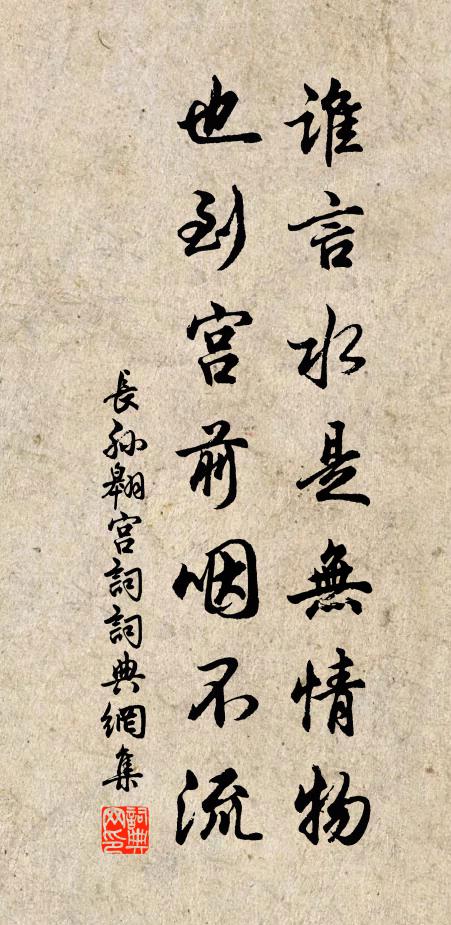 誰言水是無情物
也到宮前咽不流
長孫翱宮詞詞典網集
詞典网印